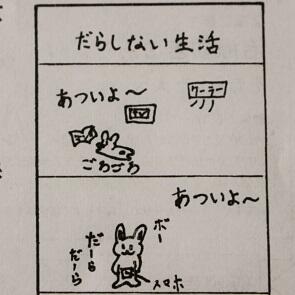 だらしない生活
あついよ〜
クーラー
ごろごろ
あついよ〜
ボー
だーら
だーら
スマホ